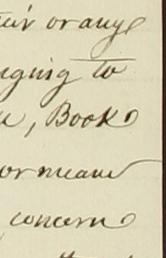 their or any
nging to
, Book
or means
concern